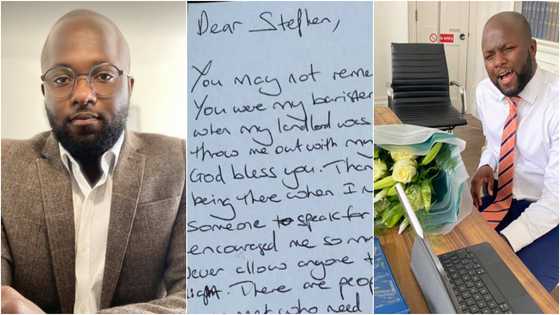 Dear Stephen,
You may not reme
You were my barrister
when my landlord was
throw me out with my
God bless you. Than
being there when I n
someone to speak for
encouraged me so m
never allow anyone t
light. There are peop
who need